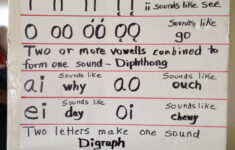 ii sounds like see
o oo óó öö Sounds like go
Two or more vowells combined to
form one sound - Diphthong
ai Sounds like why ao Sounds like ouch
ei Sounds like day oi Sounds like chewy
Two letters make one sound
Digraph